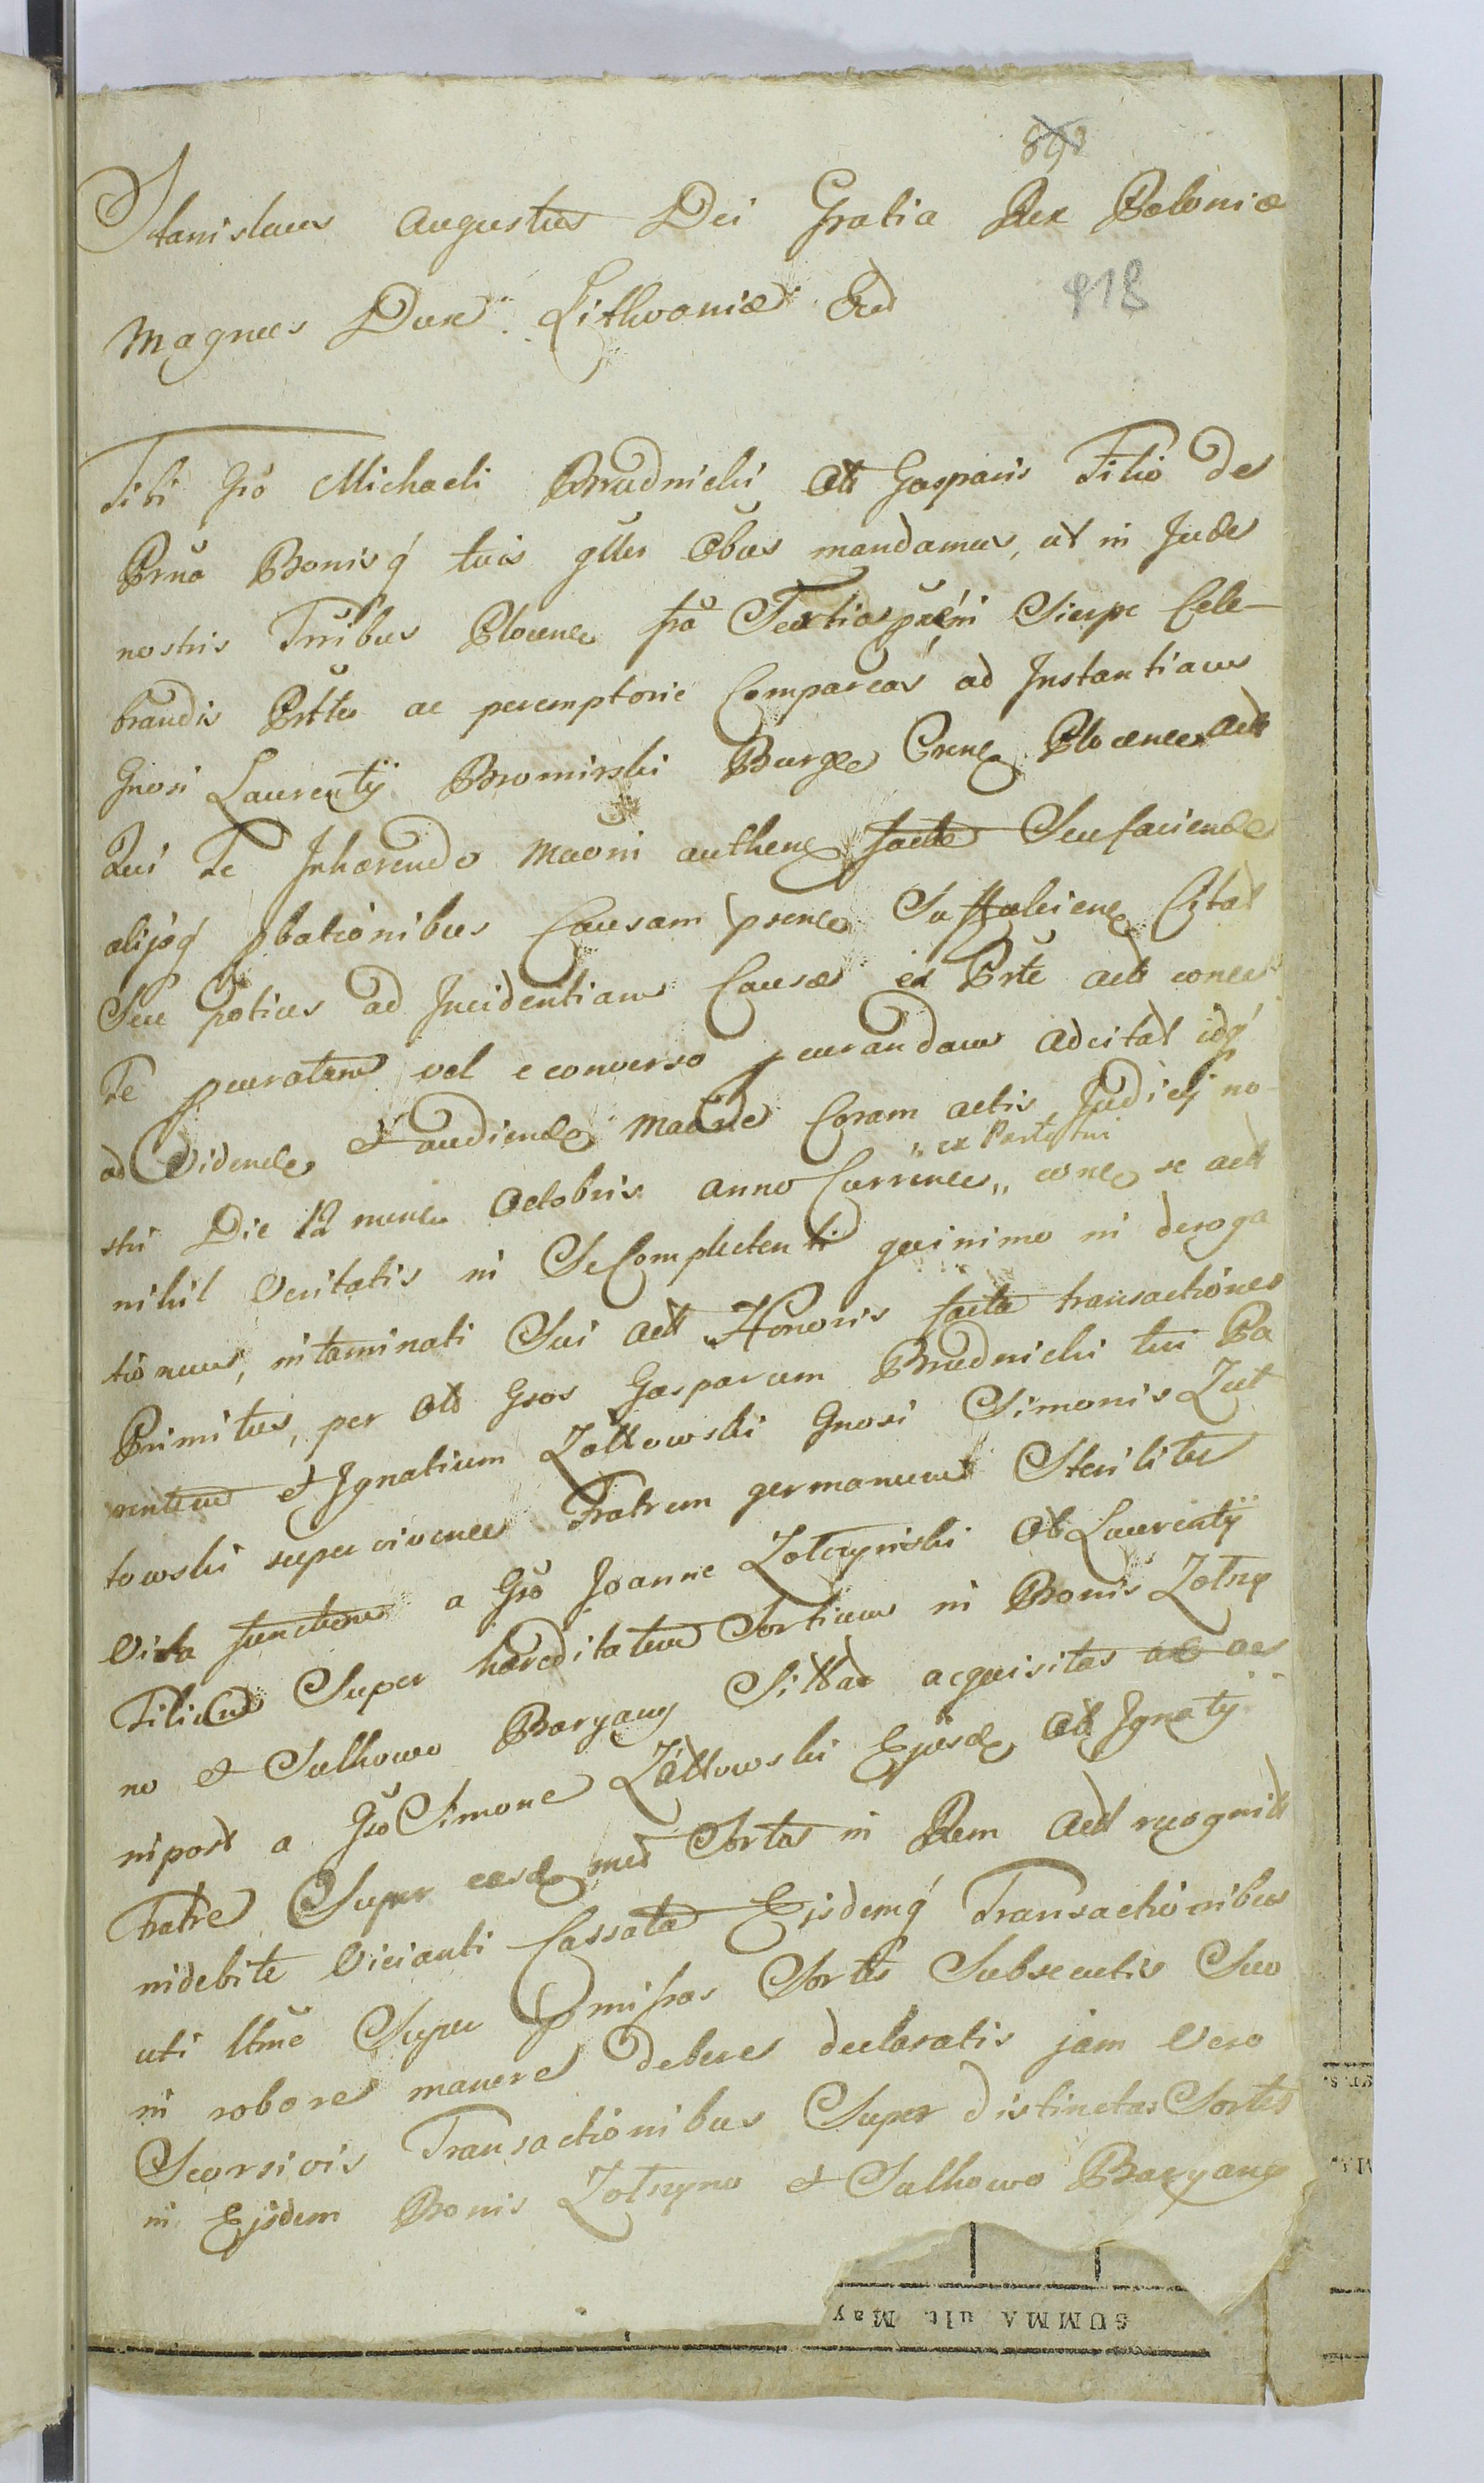 893
Stanislaus Augustus Dei Gratia Rex Poloniæ
918
Magnus Dux Lithvaniæ
Tibi Gso Michaeli Brudnicki Olt Gasparis Filio de
Prna Bonisq tuis gller Obus mandamus, ut in Judes
nostris Trribus Plocen fra Sierpc Cele-
brandis Prtter ac peremptorie Compareas ad Instantiam
Gnosi Laurentÿ Bromirski Burge Plocen Act
Qui Te Inhærendo Maoni authen factæ Seu faciendæ
alijsq pbationibus Causam psen Citat
Seu potius ad Incidentiam Causæ ex Prte act
Te vel e converso adcitat idq
ad Videnda et audienda Coram actis Judicij no-
" ex Parte tui
stri Die 12 mens Octobris anno Curren " se act
nihil Veritatis in Se Complectenti quinimo in deroga
tionem, intaminati Sui act Honoris factæ transactiones
Primitus, per Olt Gsos Gasparum Brudnicki tui Pa
rentem et Ignatium Zóltowski Gnosi Simonis Zul
towski superviven Fratrem germanum Steriliter
Vita functum a Gso Joanne Zolczynski Ol Laurentÿ
Filium Super hæreditatem Sortium in Bonis Zolny
no et Sulkowo Baryany Sittas acquisitas
inpost a Gso Simone Zóltowski Ejusd Olt Ignatÿ
Fratre Super easd med Sortes in Rem Act recognit
indebite Vicianti Cassata Ejsdemq Transactionibus
uti Super pmissas Sortes Subsecutis Suo
in robore manere debere declaratis jam Vero
Seorsivis Transactionibus Super distinctas Sortes
in Ejsdem Bonis Zolnyno et Sulkowo Baryany
SUMMA ult. May